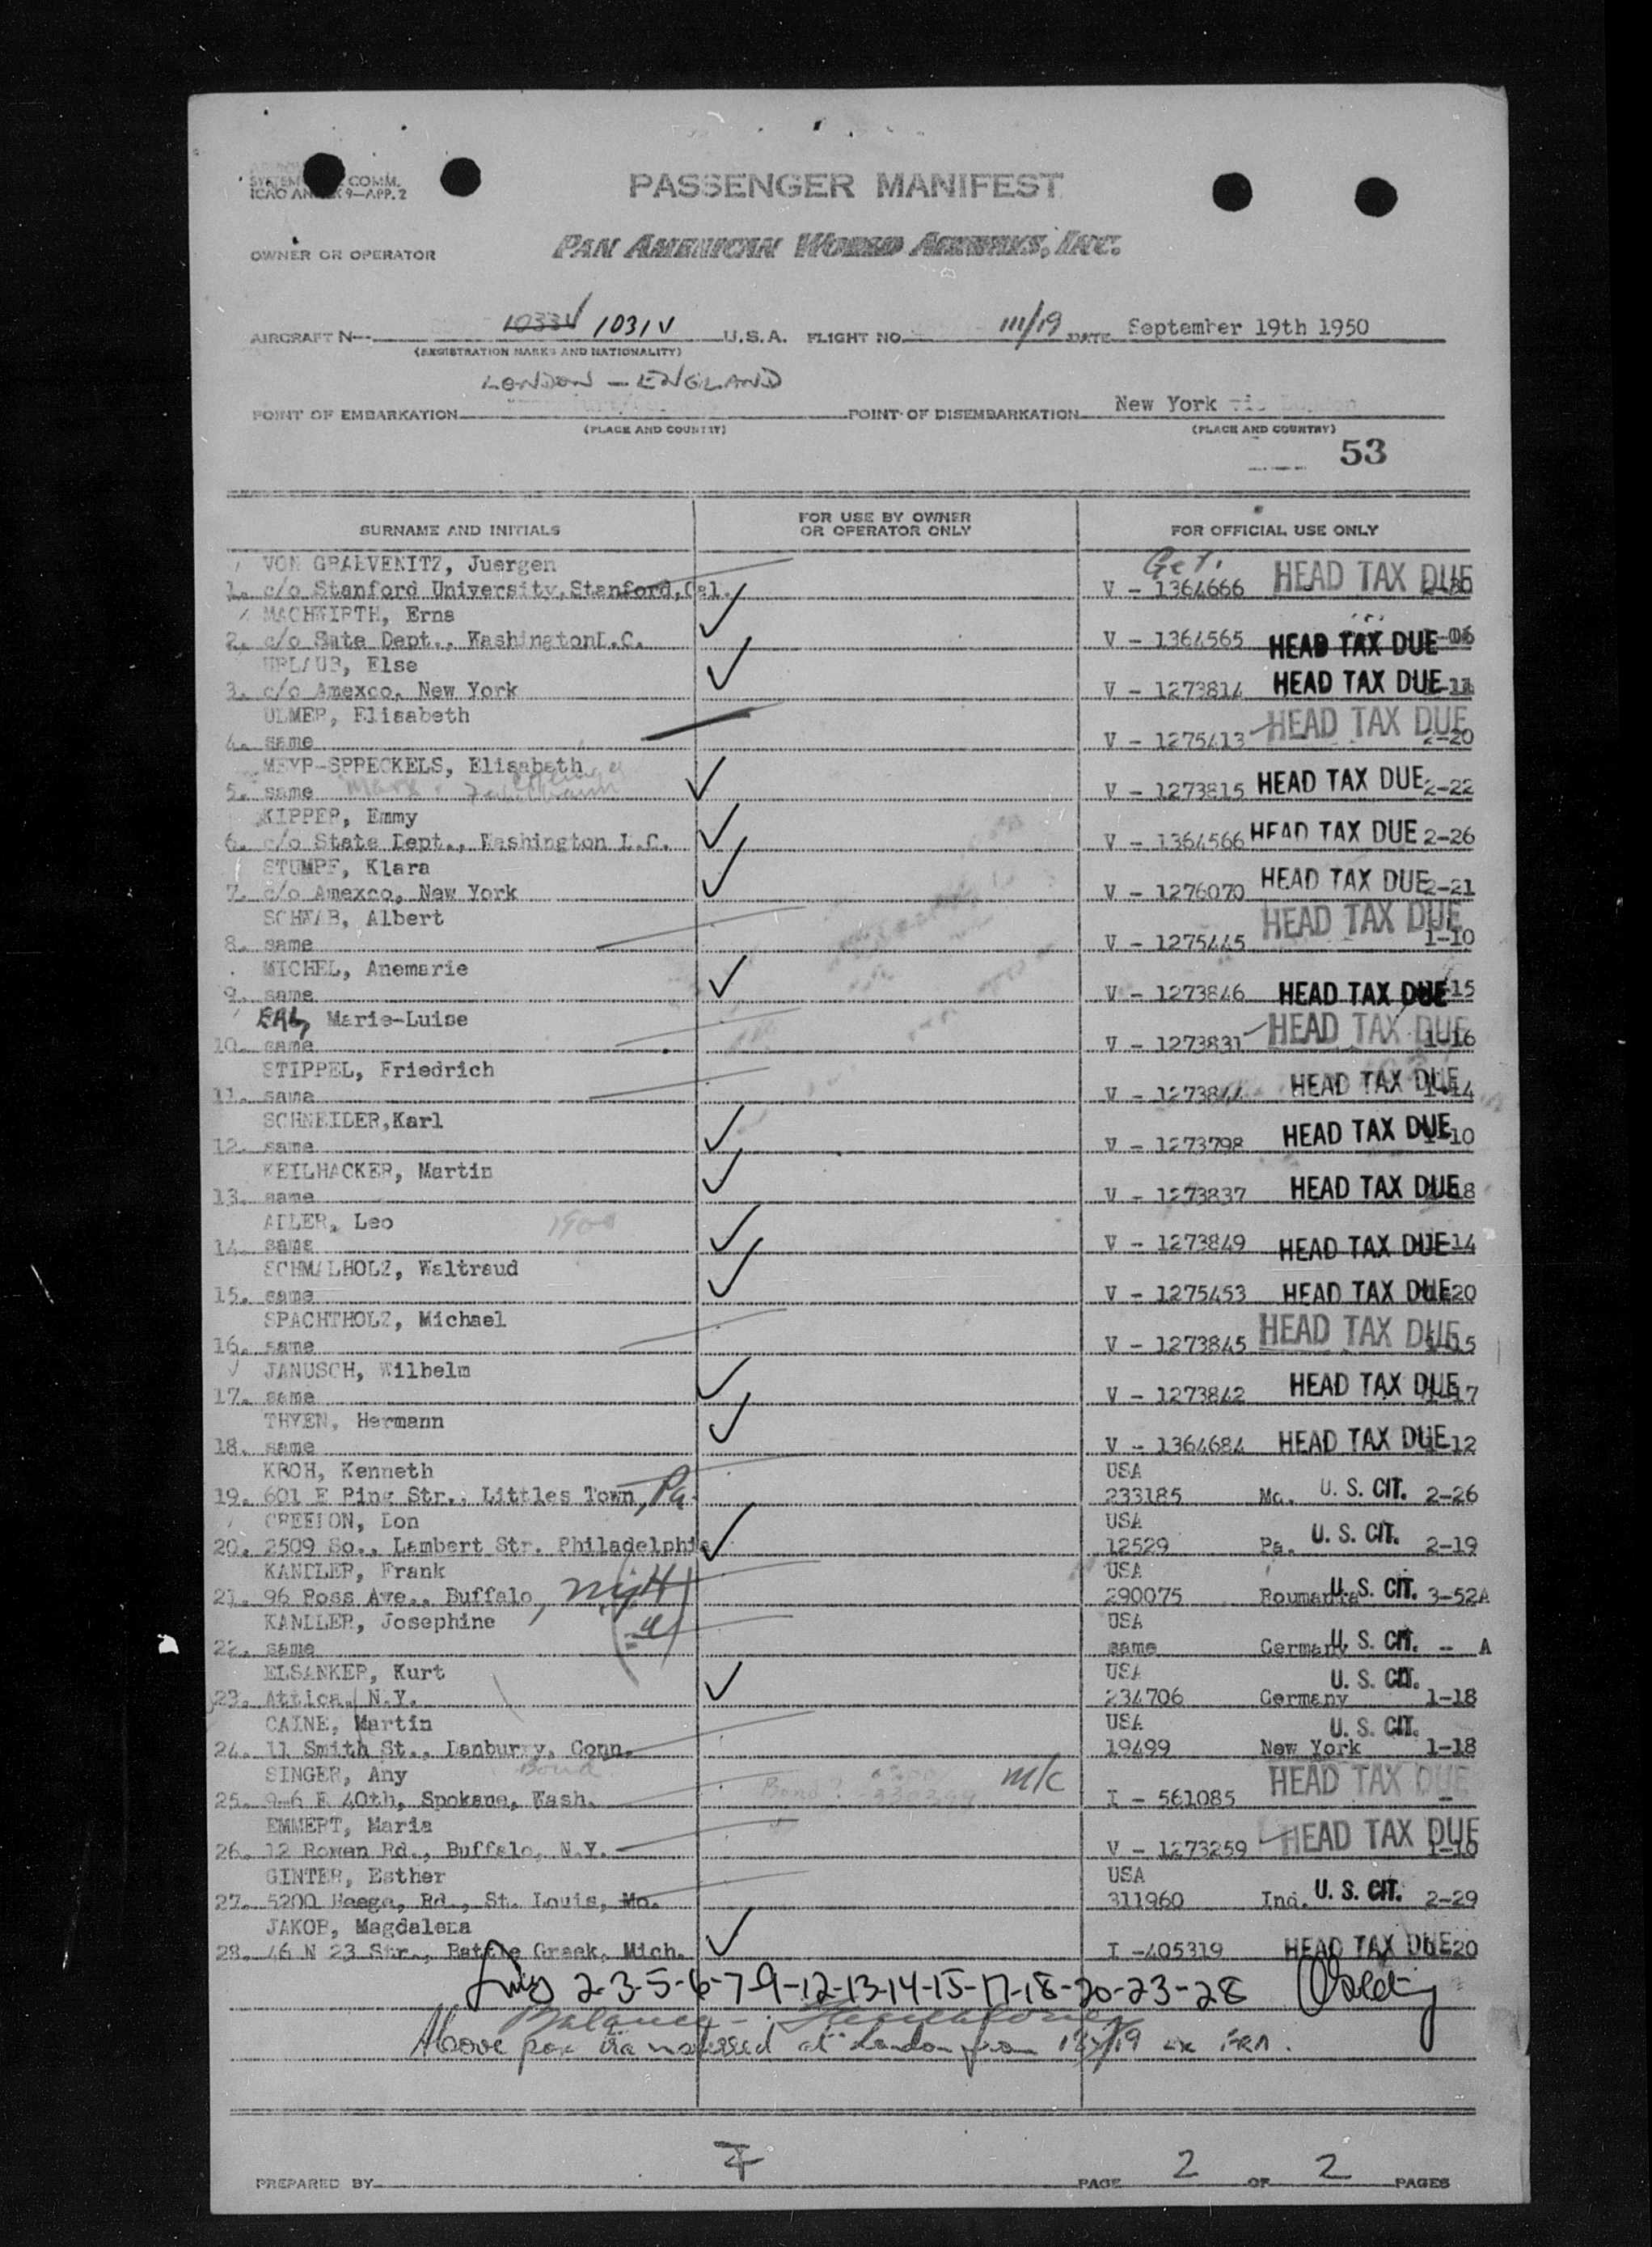 SYSTEM COMM.
ICAO ANNEX 9—APP. 2
PASSENGER MANIFEST
OWNER OR OPERATOR
PAN AMERICAN WORLD AIRWAYS, INC.
AIRCRAFT N 1033V 1031V U.S.A. FLIGHT NO. 111/19 DATE September 19th 1950
(REGISTRATION MARKS AND NATIONALITY)
LONDON — ENGLAND
POINT OF EMBARKATION POINT OF DISEMBARKATION New York via London
(PLACE AND COUNTRY) (PLACE AND COUNTRY)
53
SURNAME AND INITIALS
FOR USE BY OWNER
OR OPERATOR ONLY
FOR OFFICIAL USE ONLY
VON GRAEVENITZ, Juergen
1. c/o Stanford University, Stanford, Cal. V - 1364666 HEAD TAX DUE
MACHWIRTH, Erna
2. c/o Sate Dept., Washington D.C. V - 1364565 HEAD TAX DUE
URLAUB, Else
3. c/o Amexco, New York V - 1273814 HEAD TAX DUE -11
ULMER, Elisabeth
4. same V - 1275413 HEAD TAX DUE 2-20
MEYR-SPRECKELS, Elisabeth
5. same V - 1273815 HEAD TAX DUE 2-22
KIPPER, Emmy
6. c/o State Dept., Washington D.C. V - 1364566 HEAD TAX DUE 2-26
STUMPF, Klara
7. c/o Amexco, New York V - 1276070 HEAD TAX DUE 2-21
SCHWAB, Albert
8. same V - 1275445 HEAD TAX DUE 1-10
MICHEL, Anemarie
9. same V - 1273846 HEAD TAX DUE 15
Marie-Luise
10. same V - 1273831 HEAD TAX DUE 1-16
STIPPEL, Friedrich
11. same V - 1273844 HEAD TAX DUE 1-14
SCHNEIDER,Karl
12. same V - 1273798 HEAD TAX DUE 10
KEILHACKER, Martin
13. same V - 1273837 HEAD TAX DUE 18
ADLER, Leo
14. same V - 1273849 HEAD TAX DUE 14
SCHMALHOLZ, Waltraud
15. same V - 1275453 HEAD TAX DUE 20
SPACHTHOLZ, Michael
16. same V - 1273845 HEAD TAX DUE 15
JANUSCH, Wilhelm
17. same V - 1273842 HEAD TAX DUE 17
THYEN, Hermann
18. same V - 1364684 HEAD TAX DUE 12
KROH, Kenneth USA
19. 601 E Ping Str., Littles Town, Pa. 233185 Mo. U. S. CIT. 2-26
CREETON, Don USA
20. 2509 So., Lambert Str. Philadelphia 12529 Pa. U. S. CIT. 2-19
KANDLER, Frank USA
21. 96 Ross Ave., Buffalo, 290075 Roumania U. S. CIT. 3-52A
KANDLER, Josephine USA
22. same same Germany U. S. CIT. - A
ELSANKER, Kurt USA
23. Attica, N.Y. 234706 Germany U. S. CIT. 1-18
CAINE, Martin USA
24. 11 Smith St., Danburry, Conn. 19499 New York U. S. CIT. 1-18
SINGER, Any Bond M/C
25. 9-6 E 40th, Spokane, Wash. I - 561085 HEAD TAX DUE -
EMMERT, Maria
26. 12 Rowan Rd., Buffalo, N.Y. V - 1273259 HEAD TAX DUE 1-10
GINTER, Esther USA
27. 5200 Heege, Rd., St. Louis, Mo. 311960 Ind. U. S. CIT. 2-29
JAKOB, Magdalena
28. 46 N 23 Str., Battle Greek, Mich. I -405319 HEAD TAX DUE 20
2-3-5-6-7-9-12-13-14-15-17-18-20-23-28
Above pax transferred at London from
PREPARED BY PAGE 2 OF 2 PAGES